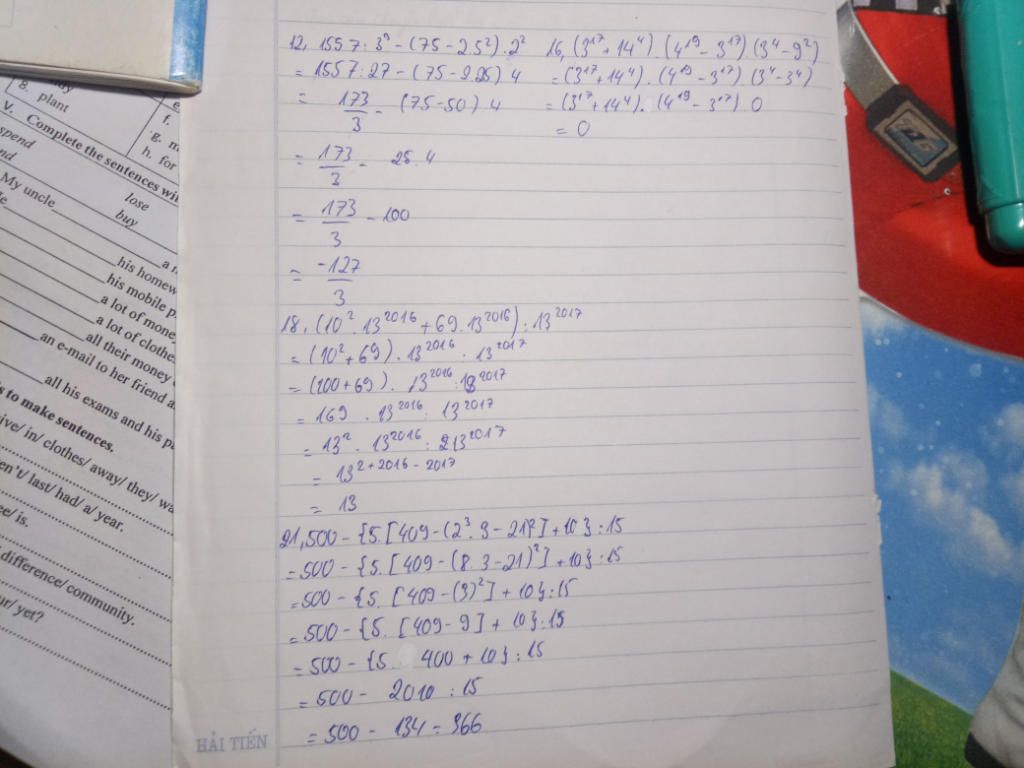 8. plant
e.
f.
g. m
h. for
V. Complete the sentences wi
spend
nd
lose
buy
My uncle
a n
his homew
his mobile p
a lot of mone
a lot of clothe
all their money
an e-mail to her friend a
all his exams and his pa
s to make sentences.
ive/ in/ clothes/ away/ they/ wa
en't/ last/ had/ a/ year.
ee/ is.
difference/ community.
ur/ yet?
12, 1557 : 3³ - (75 - 2.5²) . 2²
= 1557 : 27 - (75 - 2.25) 4
= 173/3 - (75 - 50) 4
= 173/3 - 25 . 4
= 173/3 - 100
= -127/3
16, (3¹⁷ + 14⁴) . (4¹⁹ - 3¹⁷) (3⁴ - 9²)
= (3¹⁷ + 14⁴) . (4¹⁹ - 3¹⁷) (3⁴ - 3⁴)
= (3¹⁷ + 14⁴) . (4¹⁹ - 3¹⁷) 0
= 0
18, (10² . 13²⁰¹⁶ + 69 . 13²⁰¹⁶) : 13²⁰¹⁷
= (10² + 69) . 13²⁰¹⁶ . 13²⁰¹⁷
= (100 + 69) . 13²⁰¹⁶ : 13²⁰¹⁷
= 169 . 13²⁰¹⁶ : 13²⁰¹⁷
= 13² . 13²⁰¹⁶ : 13²⁰¹⁷
= 13²⁺²⁰¹⁶⁻²⁰¹⁷
= 13
21, 500 - {5. [409 - (2³ . 3 - 21)²] + 10} : 15
= 500 - {5. [409 - (8 . 3 - 21)²] + 10} : 15
= 500 - {5. [409 - (3)²] + 10} : 15
= 500 - {5. [409 - 9] + 10} : 15
= 500 - {5 . 400 + 10} : 15
= 500 - 2010 : 15
= 500 - 134 = 366
HẢI TIẾN